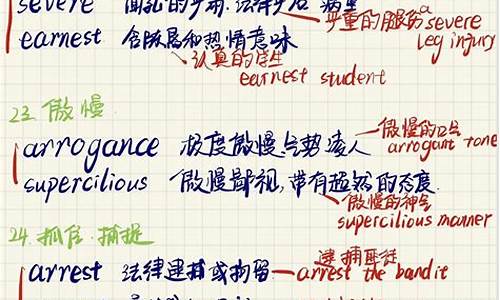 severe
严重的腿伤 a severe leg injury
earnest 含
和热情意味
认真的学生
earnest student
23. 傲慢
arrogance 极度傲慢、气势凌人
傲慢的口气
arrogant tone
supercilious 傲慢鄙视,带有超然的态度.
傲慢的神气
supercilious manner
24. 抓住.捕捉
arrest 法律逮捕或拘留
逮捕匪徒
arrest the bandit